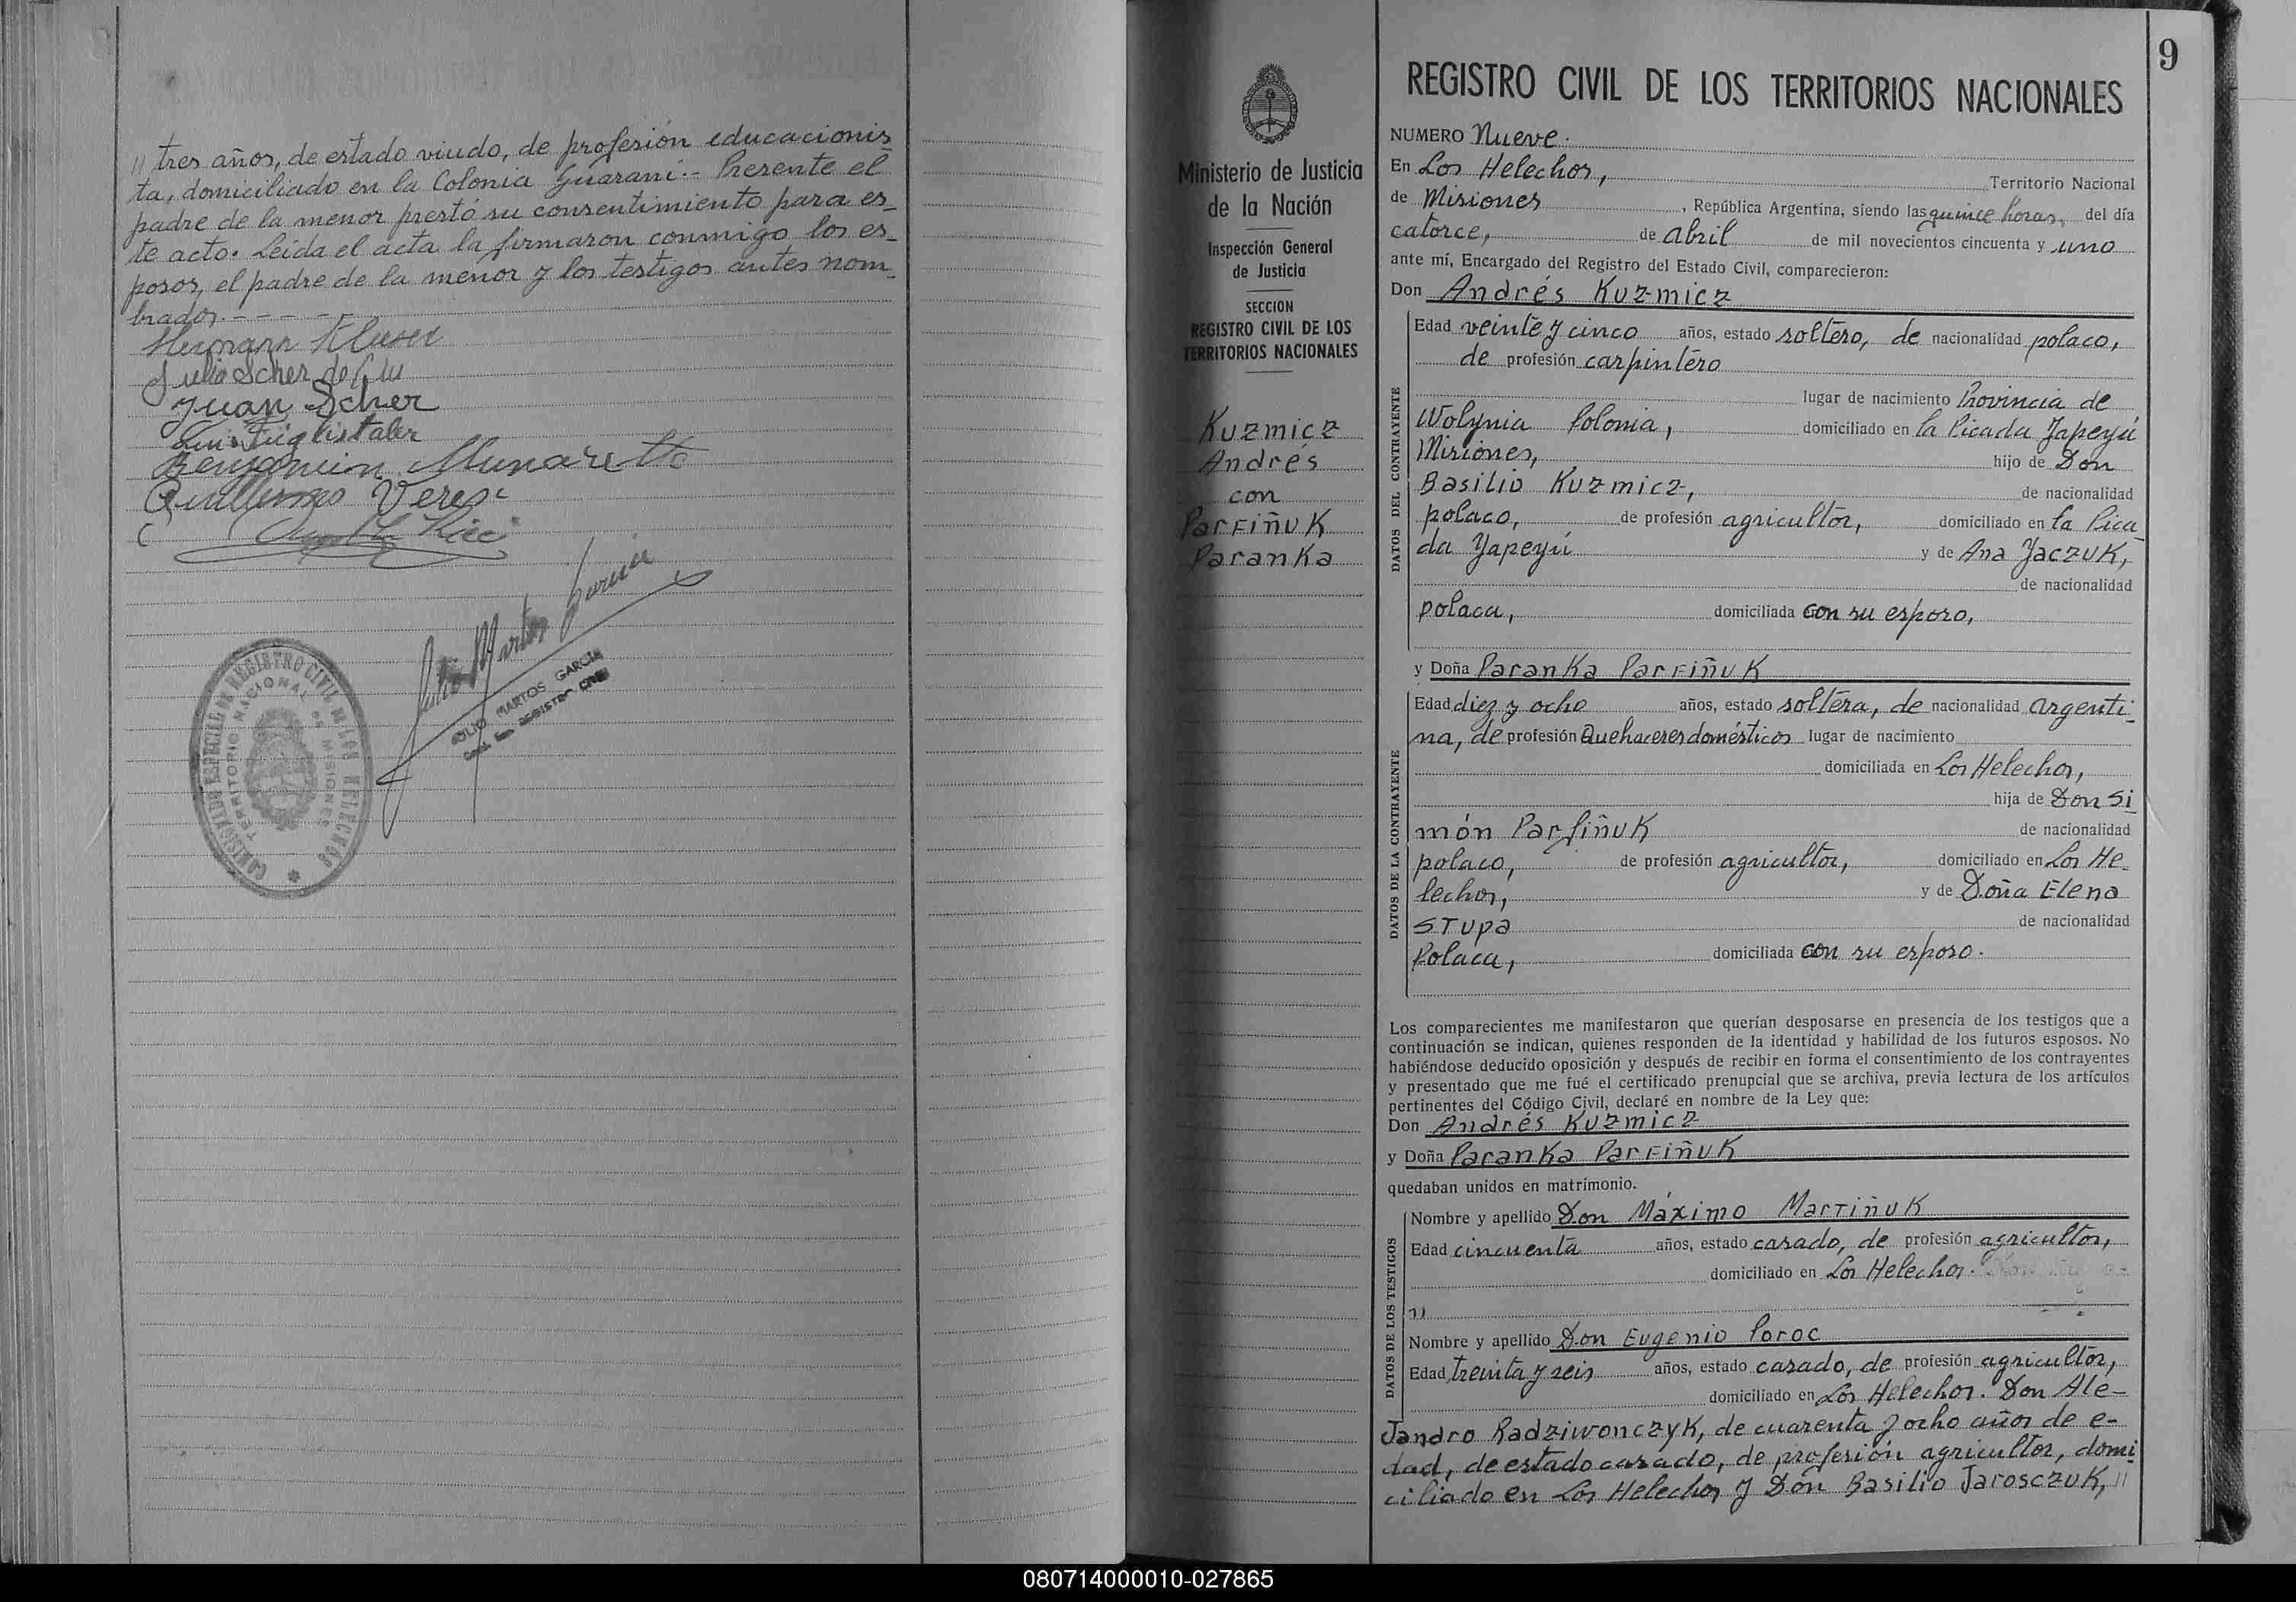 // tres años, de estado viudo, de profesión educacionis
ta, domiciliado en la Colonia Guaraní.- Presente el
padre de la menor prestó su consentimiento para es_
te acto. Leída el acta la firmaron conmigo los es_
posos, el padre de la menor y los testigos antes nom_
brados. - - - - -
Hermann
Julia Scher de
Juan Scher
Benjamin Munaretto
Guillermo
JULIO MARTOS GARCIA
REGISTRO CIVIL
TERRITORIO NACIONAL DE MISIONES
9
Ministerio de Justicia
de la Nación
Inspección General
de Justicia
SECCION
REGISTRO CIVIL DE LOS
TERRITORIOS NACIONALES
Kuzmicz
Andrés
con
Parfiñuk
Paranka
REGISTRO CIVIL DE LOS TERRITORIOS NACIONALES
NUMERO Nueve.
En Los Helechos, Territorio Nacional
de Misiones, República Argentina, siendo las quince horas, del día
catorce, de Abril de mil novecientos cincuenta y uno
ante mí, Encargado del Registro del Estado Civil, comparecieron:
Don Andrés Kuzmicz
DATOS DEL CONTRAYENTE
Edad veinte y cinco años, estado soltero, de nacionalidad polaco,
de profesión carpintero
lugar de nacimiento Provincia de
Wolynia Polonia, domiciliado en la Picada Yapeyú
Misiones, hijo de Don
Basilio Kuzmicz, de nacionalidad
polaco, de profesión agricultor, domiciliado en la Pica_
da Yapeyú y de Ana Jaczuk,
de nacionalidad
polaca, domiciliada con su esposo,
y Doña Paranka Parfiñuk
DATOS DE LA CONTRAYENTE
Edad diez y ocho años, estado soltera, de nacionalidad argenti_
na, de profesión Quehaceres domésticos lugar de nacimiento
domiciliada en Los Helechos,
hija de Don Si
món Parfiñuk de nacionalidad
polaco, de profesión agricultor, domiciliado en Los He_
lechos, y de Doña Elena
Stupa de nacionalidad
Polaca, domiciliada con su esposo.
Los comparecientes me manifestaron que querían desposarse en presencia de los testigos que a
continuación se indican, quienes responden de la identidad y habilidad de los futuros esposos. No
habiéndose deducido oposición y después de recibir en forma el consentimiento de los contrayentes
y presentado que me fué el certificado prenupcial que se archiva, previa lectura de los artículos
pertinentes del Código Civil, declaré en nombre de la Ley que:
Don Andrés Kuzmicz
y Doña Paranka Parfiñuk
quedaban unidos en matrimonio.
DATOS DE LOS TESTIGOS
Nombre y apellido Don Máximo Martiñuk
Edad cincuenta años, estado casado, de profesión agricultor,
domiciliado en Los Helechos.
Nombre y apellido Don Eugenio Poroc
Edad treinta y seis años, estado casado, de profesión agricultor,
domiciliado en Los Helechos. Don Ale-
Jandro Radziwonczyk, de cuarenta y ocho años de e-
dad, de estado casado, de profesión agricultor, domi
ciliado en Los Helechos y Don Basilio Jarosczuk, //
080714000010-027865